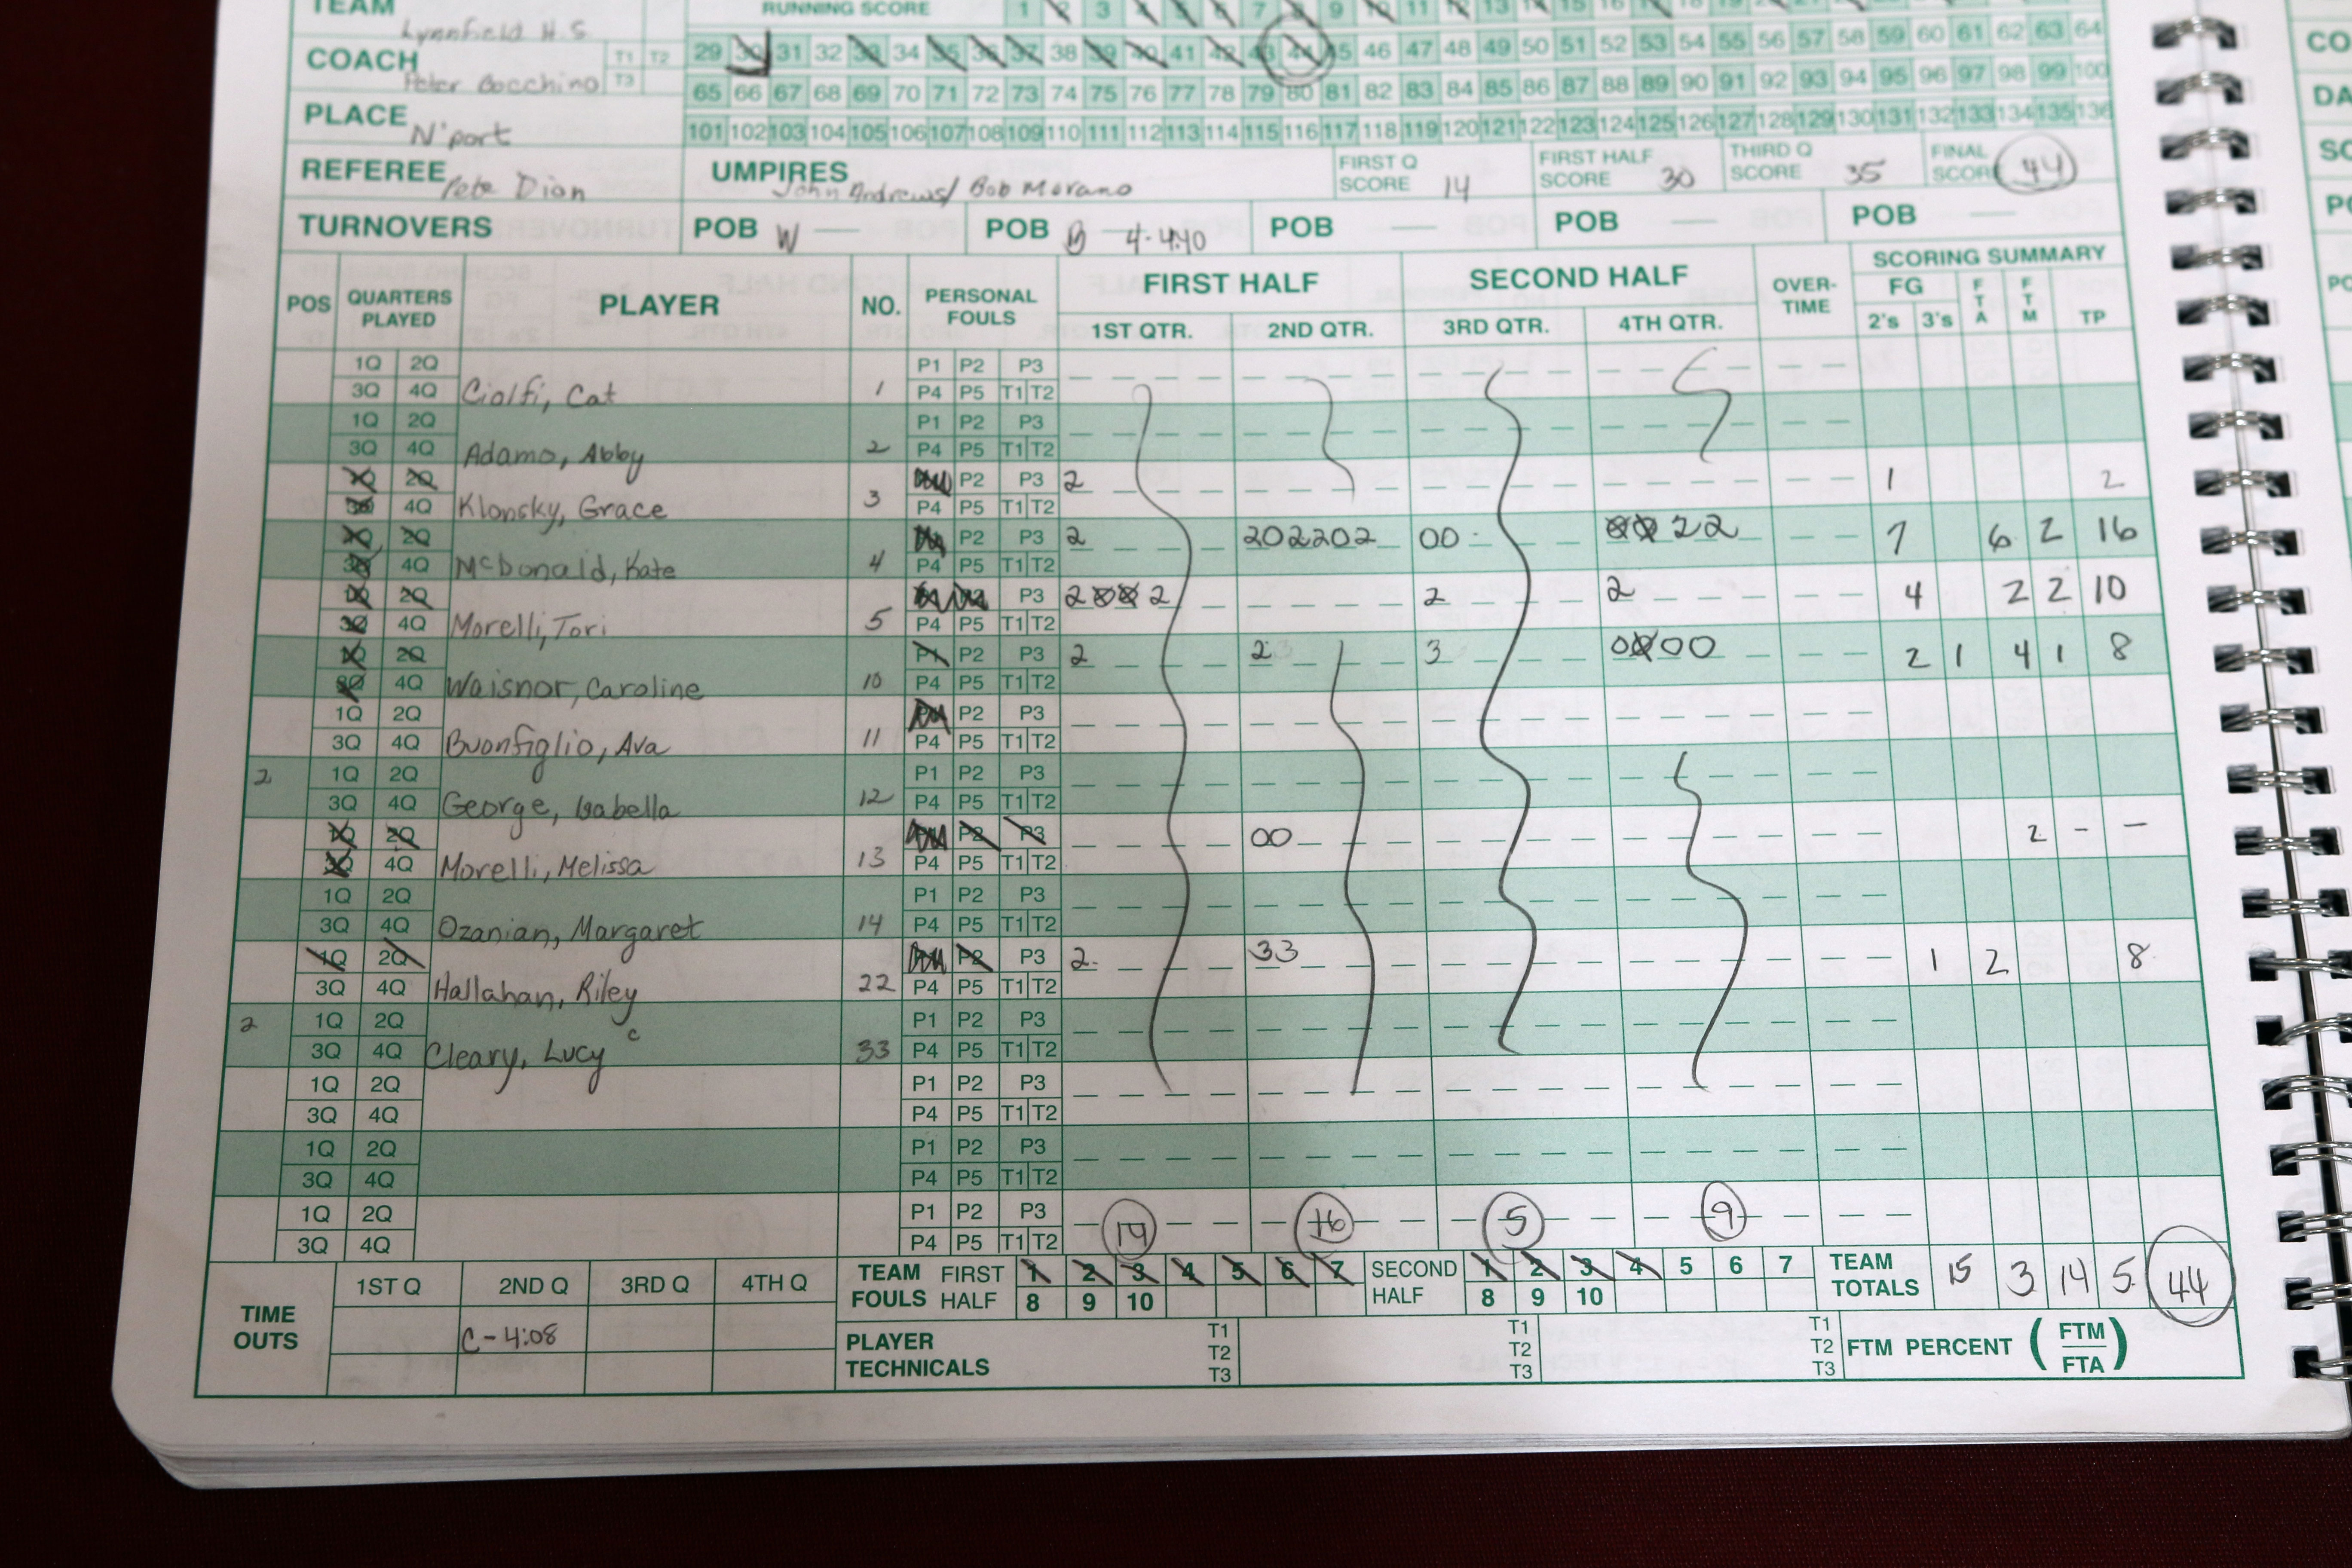 TEAM Lynnfield H.S.
RUNNING SCORE 1 2 3 4 5 6 7 8 9 10 11 12 13 14 15 16 17 18 19
COACH Peter Bocchino T1 T2 T3
29 30 31 32 33 34 35 36 37 38 39 40 41 42 43 44 45 46 47 48 49 50 51 52 53 54 55 56 57 58 59 60 61 62 63 64
65 66 67 68 69 70 71 72 73 74 75 76 77 78 79 80 81 82 83 84 85 86 87 88 89 90 91 92 93 94 95 96 97 98 99 100
PLACE N'port
101 102 103 104 105 106 107 108 109 110 111 112 113 114 115 116 117 118 119 120 121 122 123 124 125 126 127 128 129 130 131 132 133 134 135 136
REFEREE Pete Dion UMPIRES John Andrews/ Bob Morano FIRST Q SCORE 14 FIRST HALF SCORE 30 THIRD Q SCORE 35 FINAL SCORE 44
TURNOVERS POB W — POB B 4-4:40 POB — POB — POB —
POS QUARTERS PLAYED PLAYER NO. PERSONAL FOULS FIRST HALF SECOND HALF OVER-TIME SCORING SUMMARY
1ST QTR. 2ND QTR. 3RD QTR. 4TH QTR. FG 2's 3's FTA FTM TP
1Q 2Q P1 P2 P3
3Q 4Q Cialfi, Cat 1 P4 P5 T1 T2
1Q 2Q P1 P2 P3
3Q 4Q Adamo, Abby 2 P4 P5 T1 T2
1Q 2Q P1 P2 P3 2 1 2
3Q 4Q Klonsky, Grace 3 P4 P5 T1 T2
1Q 2Q P1 P2 P3 2 202202 00 00 22 7 6 2 16
3Q 4Q McDonald, Kate 4 P4 P5 T1 T2
1Q 2Q P1 P2 P3 2002 2 2 4 2 2 10
3Q 4Q Morelli, Tori 5 P4 P5 T1 T2
1Q 2Q P1 P2 P3 2 2 3 0000 2 1 4 1 8
3Q 4Q Waisnor, Caroline 10 P4 P5 T1 T2
1Q 2Q P1 P2 P3
3Q 4Q Buonfiglio, Ava 11 P4 P5 T1 T2
2 1Q 2Q P1 P2 P3
3Q 4Q George, Isabella 12 P4 P5 T1 T2
1Q 2Q P1 P2 P3 00 2 - -
3Q 4Q Morelli, Melissa 13 P4 P5 T1 T2
1Q 2Q P1 P2 P3
3Q 4Q Ozanian, Margaret 14 P4 P5 T1 T2
1Q 2Q P1 P2 P3 2 33 1 2 8
3Q 4Q Hallahan, Riley 22 P4 P5 T1 T2
2 1Q 2Q P1 P2 P3
3Q 4Q Cleary, Lucy c 33 P4 P5 T1 T2
1Q 2Q P1 P2 P3
3Q 4Q P4 P5 T1 T2
1Q 2Q P1 P2 P3
3Q 4Q P4 P5 T1 T2
1Q 2Q P1 P2 P3 14 16 5 9
3Q 4Q P4 P5 T1 T2
TIME OUTS 1ST Q 2ND Q 3RD Q 4TH Q
C-4:08
TEAM FOULS FIRST HALF 1 2 3 4 5 6 7 8 9 10 SECOND HALF 1 2 3 4 5 6 7 8 9 10
TEAM TOTALS 15 3 14 5 44
PLAYER TECHNICALS T1 T2 T3 T1 T2 T3 T1 T2 T3 FTM PERCENT (FTM/FTA)
CO
DA
SC